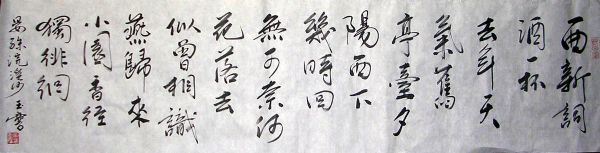 一曲新詞
酒一杯
去年天
氣舊
亭臺夕
陽西下
幾時回
無可奈何
花落去
似曾相識
燕歸來
小園香徑
獨徘徊
晏殊浣溪沙 玉